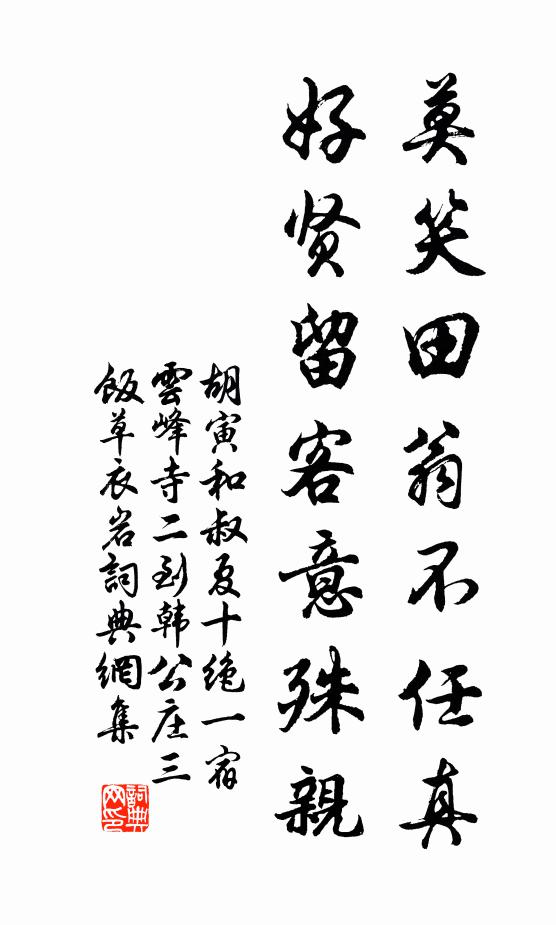 莫笑田翁不任真
好贤留客意殊親
胡寅和叔夏十绝一宿
雲峰寺二到韩公庄三
飯草衣岩詞典網集
詞典
网印